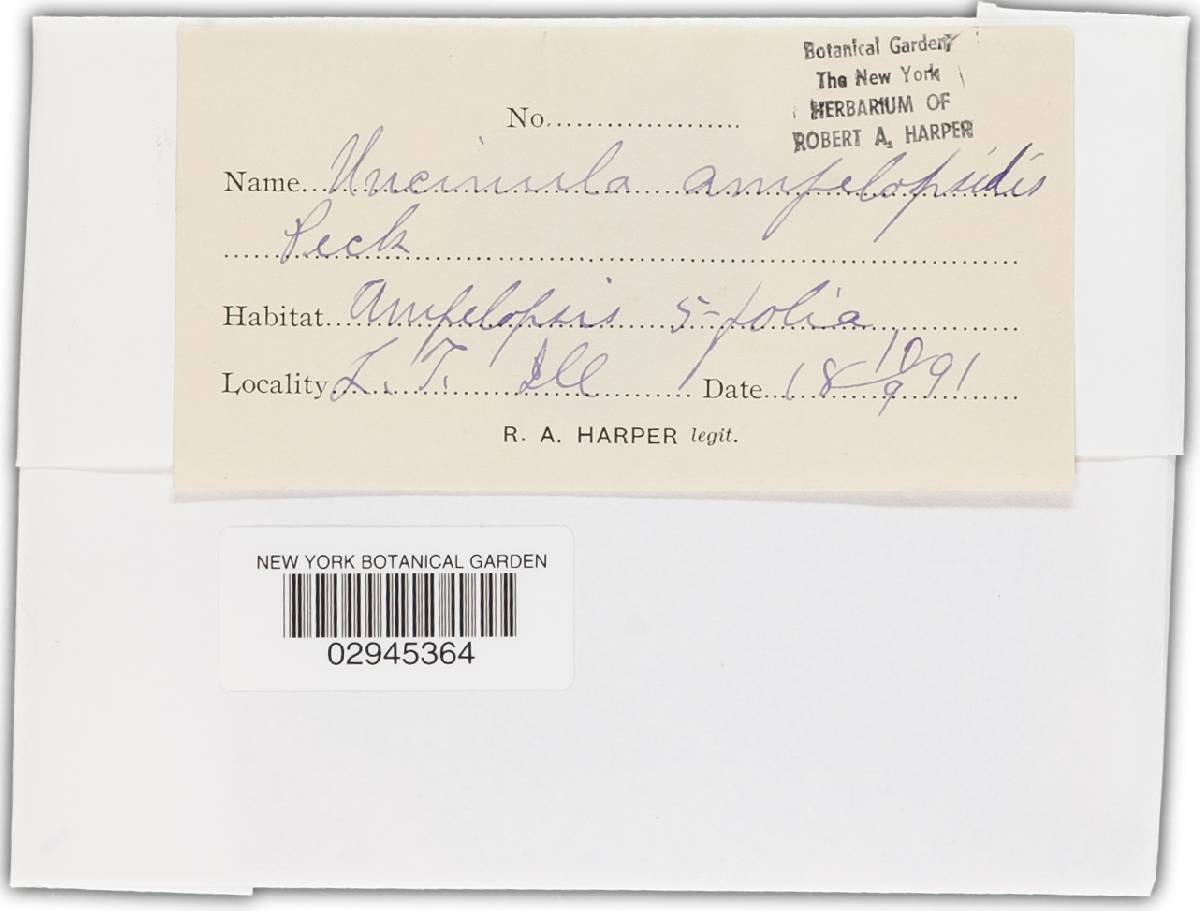 Botanical Garden
The New York
HERBARIUM OF
ROBERT A. HARPER
No....................
Name Uncinula ampelopsidis
Peck
Habitat Ampelopsis 5-folia
Locality L. F. Ill Date 18 10/9 91
R. A. HARPER legit.
NEW YORK BOTANICAL GARDEN
02945364